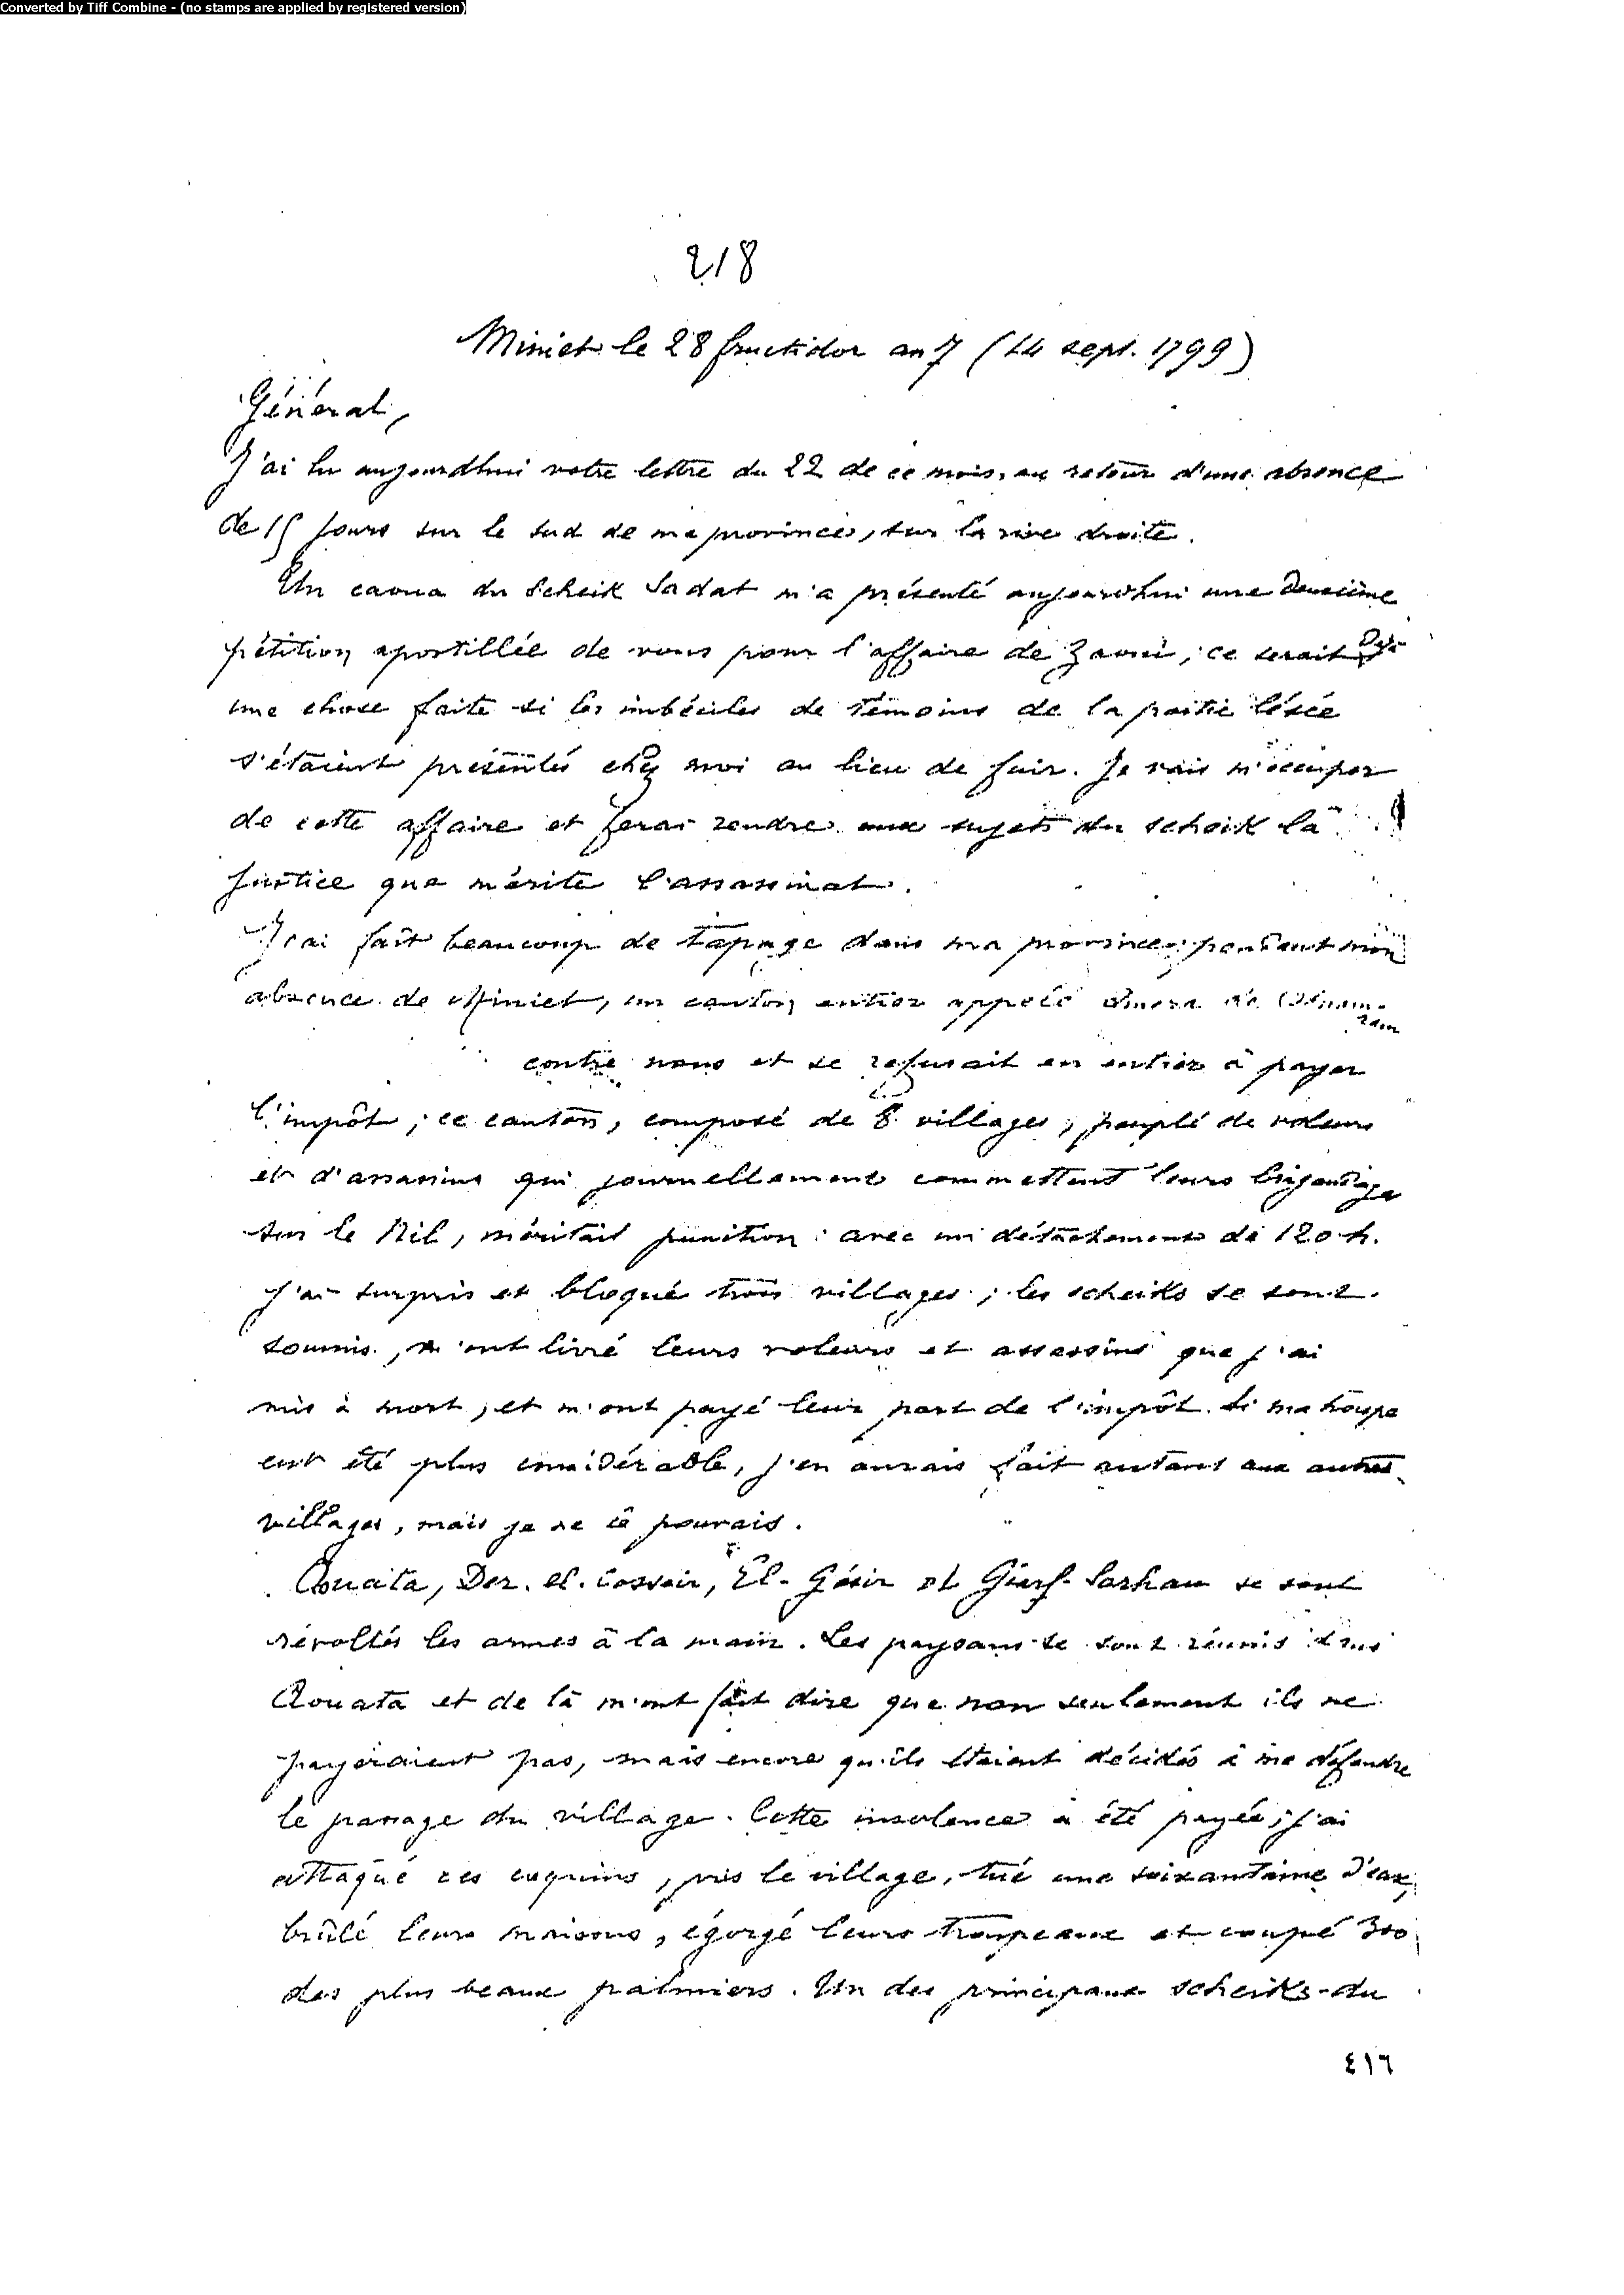 Converted by Tiff Combine - (no stamps are applied by registered version)
218
Miniet le 28 fructidor an 7 (14 sept. 1799)
Général,
J'ai lu aujourdhui votre lettre du 22 de ce mois, au retour d'une absence
de 15 jours sur le sud de ma province, sur la rive droite.
Un caoua du Scheik Sadat m'a présenté aujourd'hui une deuxième
pétition apostillée de vous pour l'affaire de Zaoui, ce serait déjà
une chose faite si les imbéciles de témoins de la partie lésée
s'étaient présentés chez moi au lieu de fuir. Je vais m'occuper
de cette affaire et ferai rendre aux sujets du scheik la
justice que mérite l'assassinat.
J'ai fait beaucoup de tapage dans ma province; pendant mon
absence de Miniet, un canton entier appelé de
contre nous et se refusait en entier à payer
l'impôt; ce canton, composé de 8 villages, peuplé de voleurs
et d'assassins qui journellement commettent leurs brigandages
sur le Nil, méritait punition: avec un détachement de 120 h.
j'ai surpris et bloqué trois villages; les scheiks se sont
soumis, m'ont livré leurs voleurs et assassins que j'ai
mis à mort, et m'ont payé leur part de l'impôt. Si ma troupe
eut été plus considérable, j'en aurais fait autant aux autres
villages, mais je ne le pouvais.
Aouata, Der. el. Cossair, El-Gésir et Gierf-Sarhan se sont
révoltés les armes à la main. Les paysans se sont réunis dans
Aouata et de là m'ont fait dire que non seulement ils ne
payeraient pas, mais encore qu'ils étaient décidés à me défendre
le passage du village. Cette insolence a été payée; j'ai
attaqué ces coquins, pris le village, tué une soixantaine d'eux,
brûlé leurs maisons, égorgé leurs troupeaux et coupé 300
des plus beaux palmiers. Un des principaux scheiks du
٤١٦